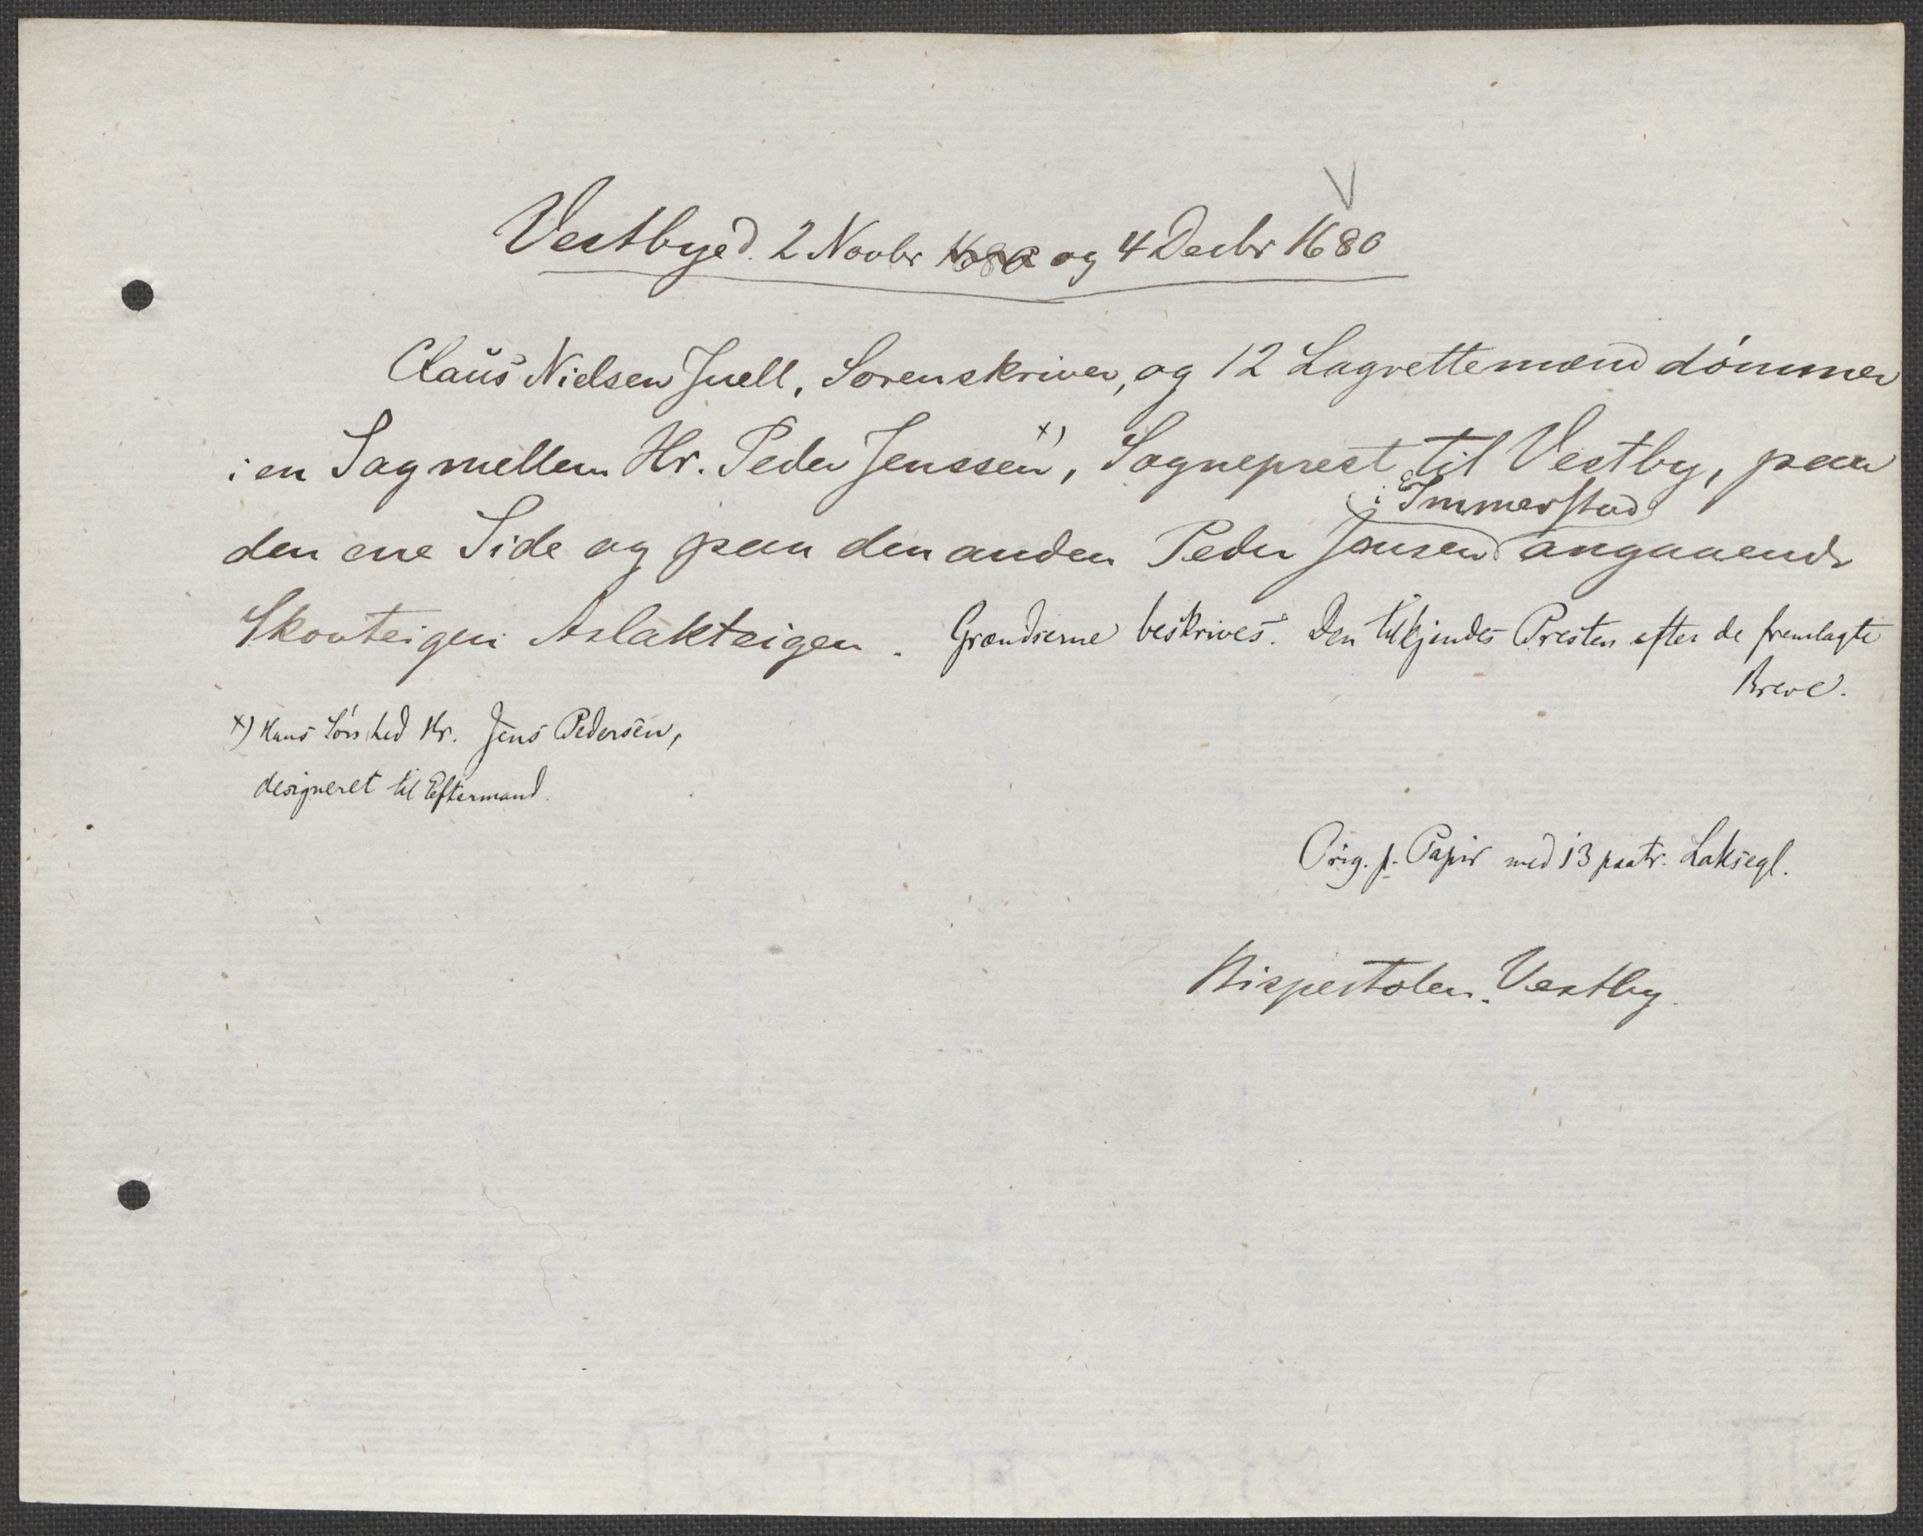 V
Vestbye d. 2 Novbr 1680 og 4 Decbr 1680
Claus Nielsen Juell, Sorenskriver, og 12 Lagrettemænd dömmer
i en Sag mellem Hr. Peder Jenssen x), Sogneprest til Vestby, paa
i Immerstad
den ene Side og paa den anden Peder Jensen angaaende
Skovteigen Aslakteigen. Grændserne beskrives. Den tilkjendes Presten efter de fremlagte
Breve.
x) Hans Sön hed Hr. Jens Pedersen,
designeret til Eftermand.
Orig. p. Papir med 13 paatr. Laksegl.
Bispestolen. Vestby.